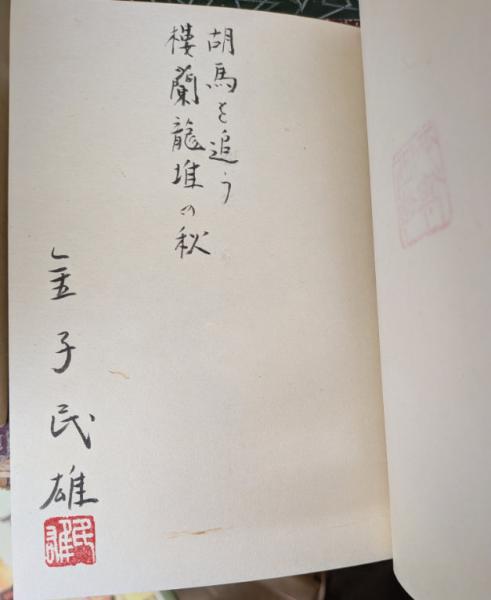 胡馬を追う
樓蘭龍堆の秋
金子民雄
民雄